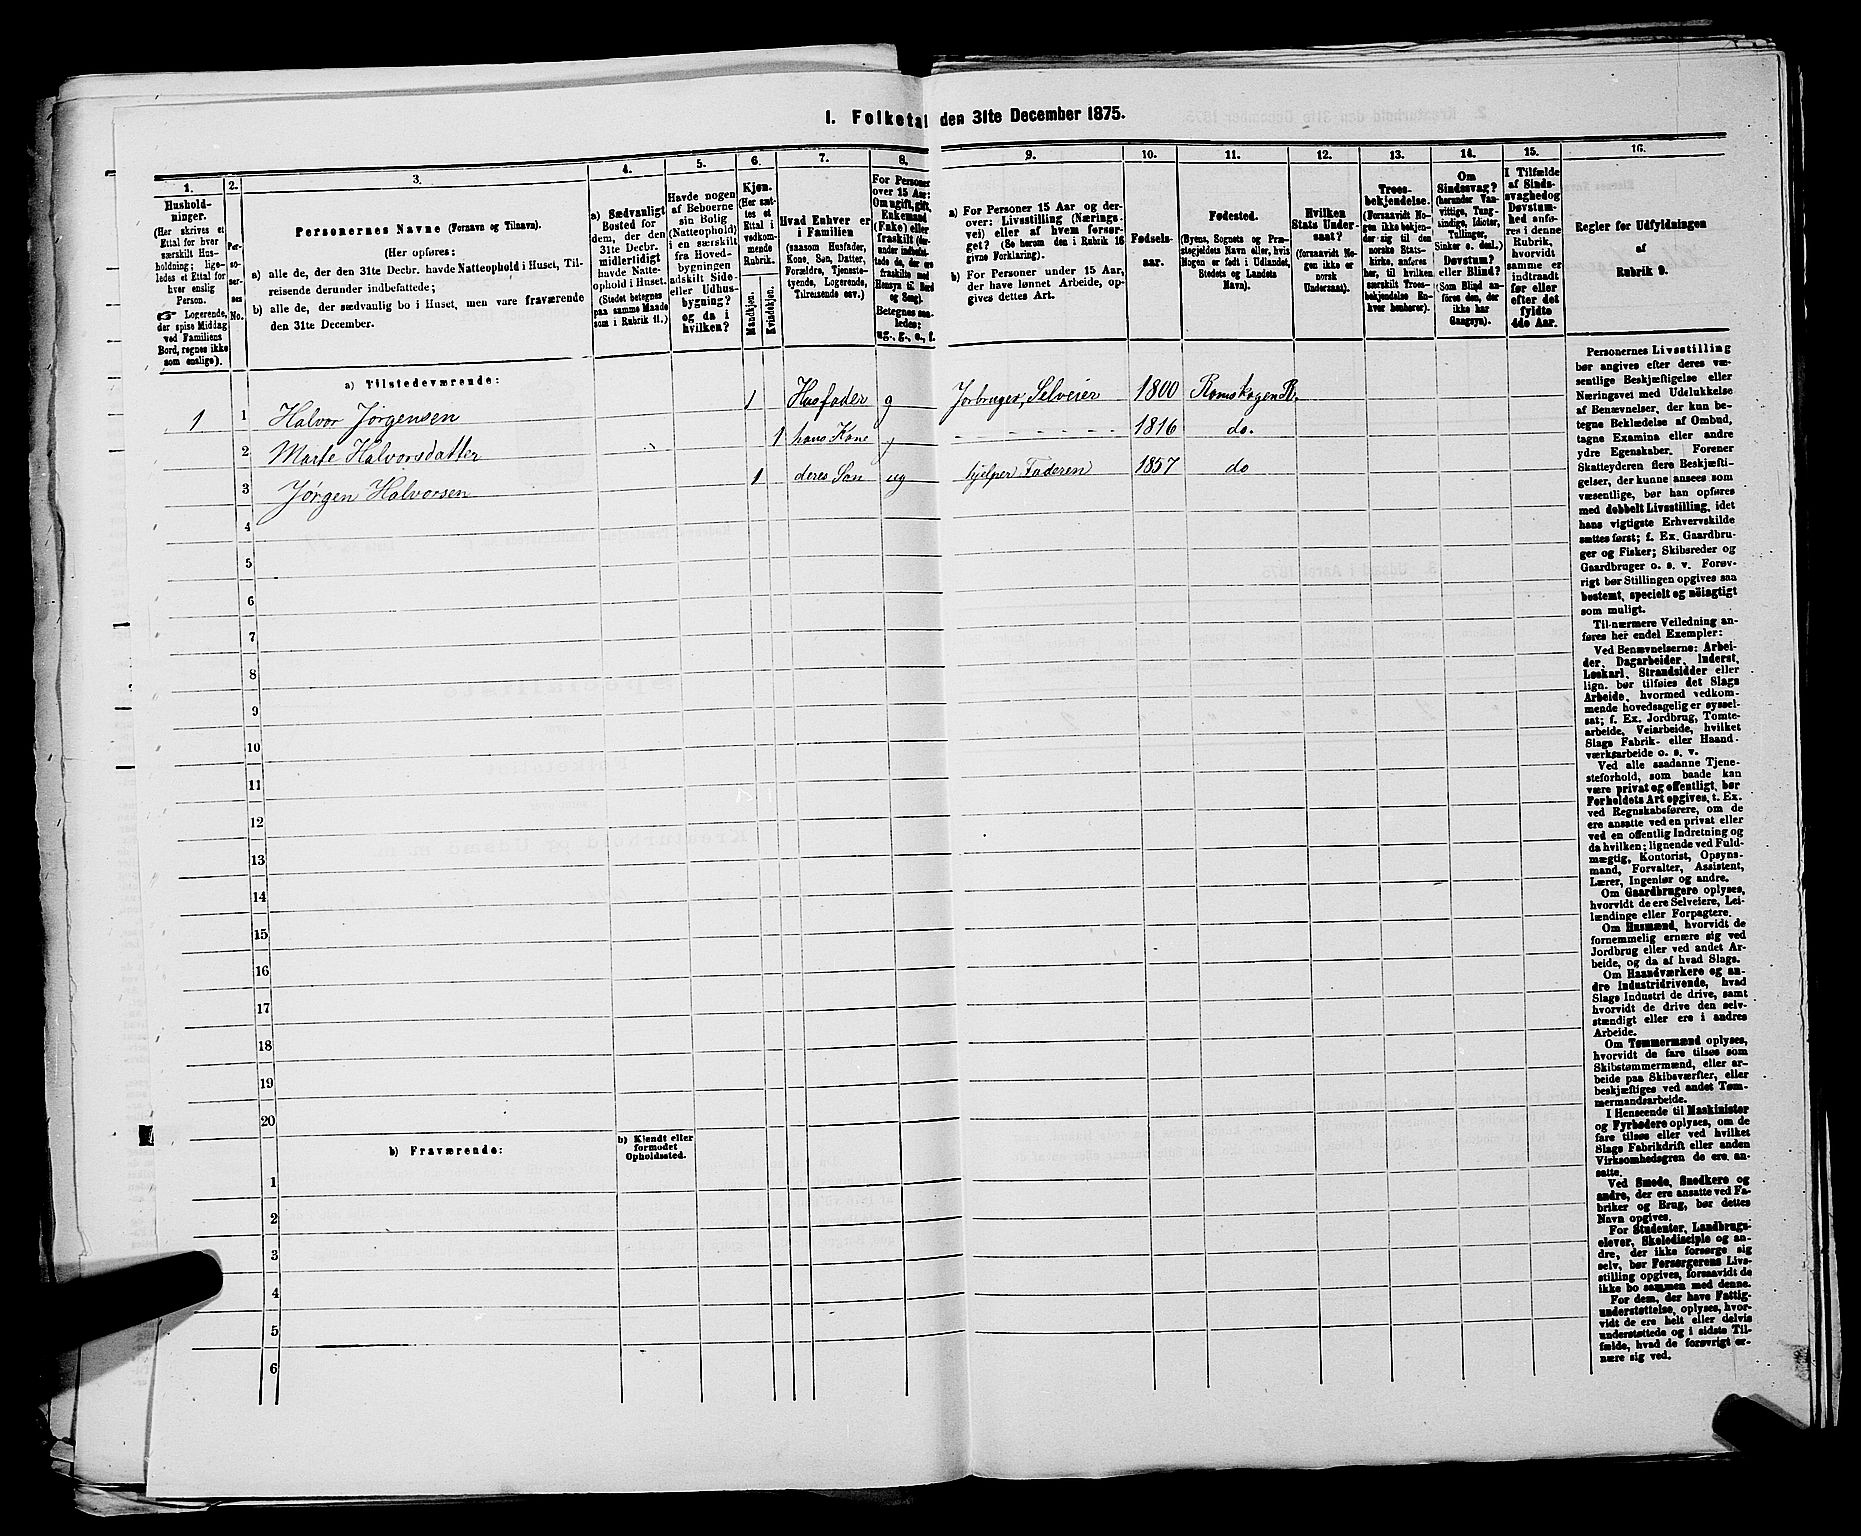 I. Folketal den 31te December 1875.
1.
2.
3.
4.
5.
6.
7.
8.
9.
10.
11.
12.
13.
14.
15.
16.
Hushold-
ninger.
(Her skrives et
Ettal for hver
særskilt Hus-
holdning; lige-
ledes et Ettal for
hver enslig
Person.
☞ Logerende,
der spise Middag
ved Familiens
Bord, regnes ikke
som enslige).
Per-
so-
ner-
nes
No.
Personernes Navne (Fornavn og Tilnavn).
(Her opføres:
a) alle de, der den 31te Decbr. havde Natteophold i Huset, Til-
reisende derunder indbefattede;
b) alle de, der sædvanlig bo i Huset, men vare fraværende
den 31te December.
a) Sædvanligt
Bosted for
dem, der den
31te Decbr.
midlertidigt
havde Natte-
ophold i Huset.
(Stedet betegnes
paa samme Maade
som i Rubrik 11.)
Havde nogen
af Beboerne
sin Bolig
(Natteophold)
i en særskilt
fra Hoved-
bygningen
adskilt Side-
eller Udhus-
bygning?
og da i
hvilken?
Kjøn.
(Her sæt-
tes et
Ettal i
vedkom-
mende
Rubrik.
Mandkjøn.
Kvindekjøn.
Hvad Enhver er
i Familien
(saasom Husfader,
Kone, Søn, Datter,
Forældre, Tjeneste-
tyende, Logerende,
Tilreisende osv.)
For Personer
over 15 Aar:
Om ugift, gift,
Enkemand
(Enke) eller
fraskilt (her-
under indbefat-
tede de, der ere
fraskilte med
Hensyn til Bord
og Seng).
Betegnes saa-
ledes:
ug., g., e., f.
a) For Personer 15 Aar og der-
over: Livsstilling (Nærings-
vei) eller af hvem forsør-
get? (Se herom den i Rubrik 16
givne Forklaring).
b) For Personer under 15 Aar,
der have lønnet Arbeide, op-
gives dettes Art.
Fødsels-
aar.
Fødested.
(Byens, Sognets og Præ-
stegjeldets Navn eller, hvis
Nogen er født i Udlandet,
Stedets og Landets
Navn).
Hvilken
Stats Under-
saat?
(forsaavidt No-
gen ikke er
norsk
Undersaat).
Troes-
bekjendelse.
(Forsaavidt No-
gen ikke bekjen-
der sig til den
norske Stats-
kirke, anføres
her, til hvilken
særskilt Troes-
bekjendelse En-
hver henhører).
Om
Sindssvag?
(herunder Van-
vittige, Tung-
sindige, Idioter,
Tullinger,
Sinker o. desl.)
Døvstum?
eller Blind?
(Som Blind an-
føres den, der
ikke har
Gangsyn).
I Tilfælde
af Sinds-
svaghed og
Døvstum-
hed anfø-
res i denne
Rubrik,
hvorvidt
samme er
indtraadt
før eller
efter det
fyldte
4de Aar.
Regler for Udfyldningen
af
Rubrik 9.
a) Tilstedeværende:
1 1 Halvor Jørgensen 1 Husfader g Jorbruger, Selveier 1800 Romskogen
2 Marte Halvorsdatter 1 hans Kone g 1816 do.
3 Jørgen Halvorsen 1 deres Søn ug hjelper Faderen 1857 do
4
5
6
7
8
9
10
11
12
13
14
15
16
17
18
19
20
b) Fraværende:
b) Kjendt eller
formodet
Opholdssted.
1
2
3
4
5
6
Personernes Livsstilling
bør angives efter deres væ-
sentlige Beskjæftigelse eller
Næringsvei med Udelukkelse
af Benævnelser, der kun be-
tegne Beklædelse af Ombud,
tagne Examina eller andre
ydre Egenskaber. Forener
Skatteyderen flere Beskjæfti-
gelser, der kunne ansees som
væsentlige, bør han opføres
med dobbelt Livsstilling, idet
hans vigtigste Erhvervskilde
sættes først; f. Ex. Gaardbru-
ger og Fisker; Skibsreder og
Gaardbruger o. s. v. Forøv-
rigt bør Stillingen opgives saa
bestemt, specielt og nøiagtigt
som muligt.
Til nærmere Veiledning an-
føres her endel Exempler:
Ved Benævnelserne: Arbei-
der, Dagarbeider, Inderst,
Løskarl, Strandsidder eller
lign. bør tilføies det Slags
Arbeide, hvormed vedkom-
mende hovedsagelig er syssel-
sat; f. Ex. Jordbrug, Tomte-
arbeide, Veiarbeide, hvilket
Slags Fabrik- eller Haand-
værksarbeide o. s. v.
Ved alle saadanne Tjene-
steforhold, som baade kan
være privat og offentligt, bør
Forholdets Art opgives, t. Ex.
ved Regnskabsførere, om de
ere ansatte ved en privat eller
ved en offentlig Indretning og
da hvilken; lignende ved Fuld-
mægtig, Kontorist, Opsyns-
mand, Forvalter, Assistent,
Lærer, Ingeniør og andre.
Om Gaardbrugere oplyses,
hvorvidt de ere Selveiere, Lei-
lændinge eller Forpagtere.
Om Husmænd, hvorvidt de
fornemmelig ernære sig ved
Jordbrug eller ved andet Ar-
beide, og da af hvad Slags.
Om Haandværkere og an-
dre Industridrivende, hvad
Slags Industri de drive, samt
hvorvidt de drive den selv-
stændigt eller ere i andres
Arbeide.
Om Tømmermænd oplyses,
hvorvidt de fare tilsøs som
Skibstømmermænd, eller ar-
beide paa Skibsværfter, eller
beskjæftiges ved andet Tøm-
mermandsarbeide.
I Henseende til Maskinister
og Fyrbødere oplyses, om de
fare tilsøs eller ved hvilket
Slags Fabrikdrift eller anden
Virksomhedsgren de ere an-
satte.
Ved Smede, Snedkere og
andre, der ere ansatte ved Fa-
briker og Brug, bør dettes
Navn opgives.
For Studenter, Landbrugs-
elever, Skoledisciple og an-
dre, der ikke forsørge sig
selv, bør Forsørgerens Livs-
stilling opgives, forsaavidt de
ikke bo sammen med denne.
For dem, der have Fattig-
understøttelse, oplyses, hvor-
vidt de ere helt eller delvis
understøttede og i sidste Til-
fælde, hvad de forøvrigt er-
nære sig ved.